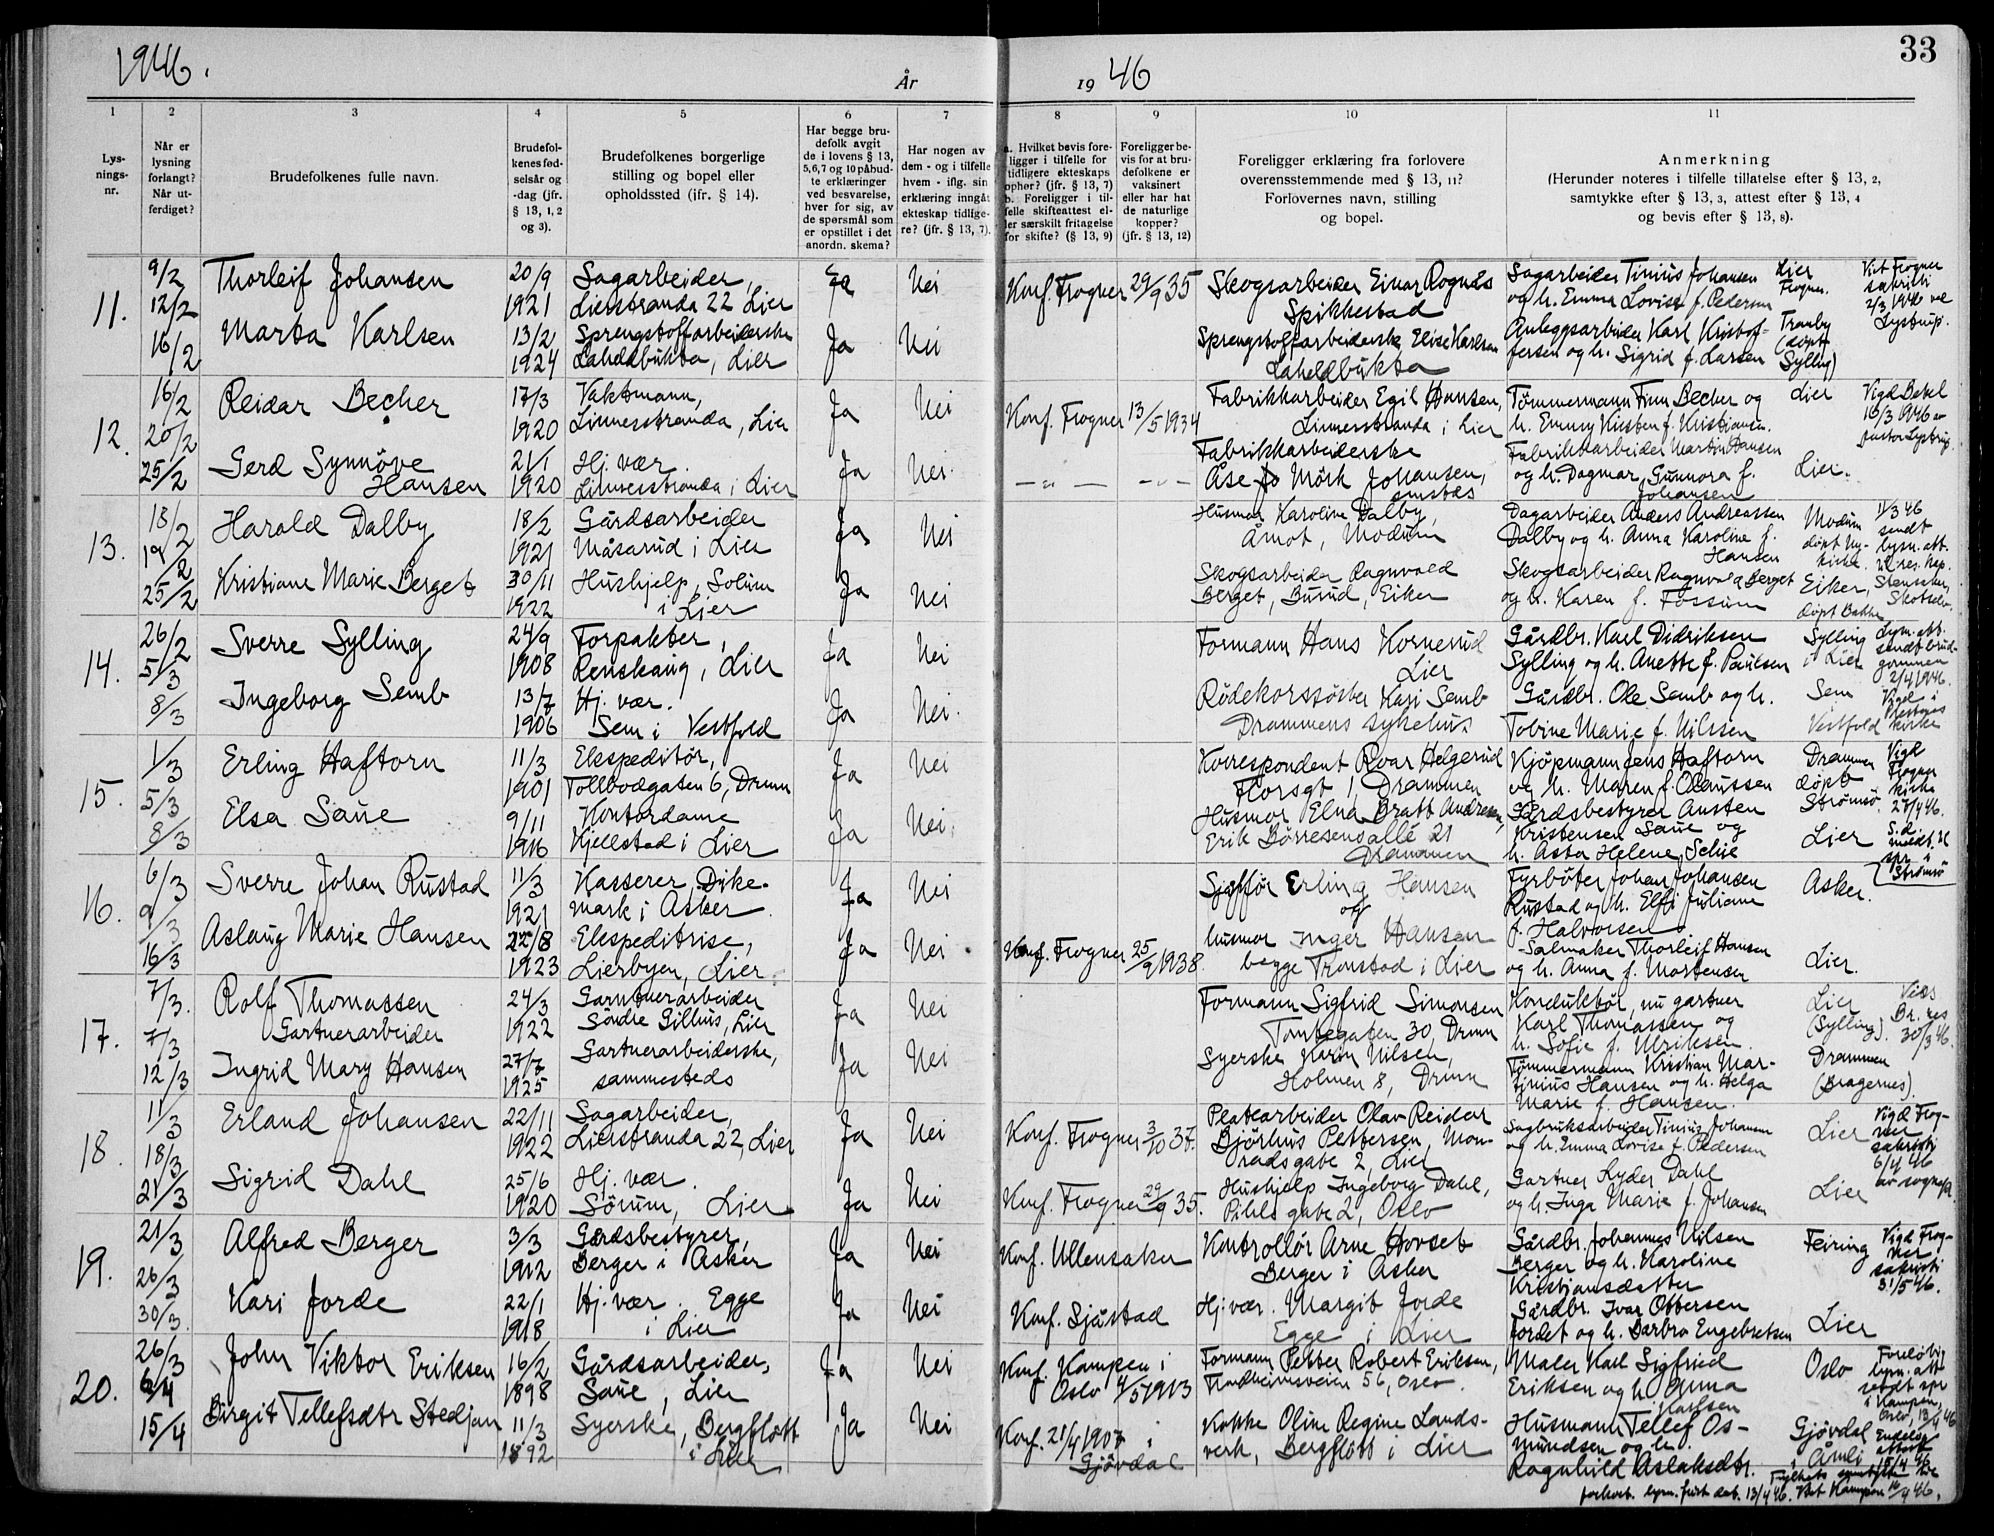 1946.
År
19 46
33
1
2
3
4
5
6
7
8
9
10
11
Lysningsnr.
Når er lysning forlangt? Når utferdiget?
Brudefolkenes fulle navn.
Brudefolkenes fødselsår og -dag (jfr. § 13, 1, 2 og 3).
Brudefolkenes borgerlige stilling og bopel eller opholdssted (jfr. § 14).
Har begge brudefolk avgit de i lovens § 13, 5, 6, 7 og 10 påbudte erklæringer ved besvarelse, hver for sig, av de spørsmål som er opstillet i det anordn. skema?
Har nogen av dem - og i tilfelle hvem - iflg. sin erklæring inngåt ekteskap tidligere? (jfr. § 13, 7).
a. Hvilket bevis foreligger i tilfelle for tidligere ekteskaps ophør? (jfr. § 13, 7) b. Foreligger i tilfelle skifteattest eller særskilt fritagelse for skifte? (§ 13, 9)
Foreligger bevis for at brudefolkene er vaksinert eller har hat de naturlige kopper? (jfr. § 13, 12)
Foreligger erklæring fra forlovere overensstemmende med § 13, 11? Forlovernes navn, stilling og bopel.
Anmerkning (Herunder noteres i tilfelle tillatelse efter § 13, 2, samtykke efter § 13, 3, attest efter § 13, 4 og bevis efter § 13, 8).
11.
9/2 12/2 16/2
Thorleif Johansen
20/9 1921
Sagarbeider, Lierstranda 22 Lier
Ja
Nei
Konf. Frogner 29/9 35
Skogsarbeider Einar Rognås Spikkestad
Sagarbeider Tinius Johansen og h. Emma Lovise f. Pedersen
Lier Frogner.
Viet Frogner sakristi 2/3 1946 ve Lystrup.
Marta Karlsen
13/2 1924
Sprengstoffarbeiderske Laheldbukta, Lier
Ja
Nei
Sprengstoffarbeiderske Elise Karlsen Laheldbukta
Anleggsarbeider Karl Kristoffersen og h. Sigrid f. Larsen
Tranby (døpt Sylling)
12.
16/2 20/2 25/2
Reidar Becher
17/3 1920
Vaktmann, Linnesstranda, Lier
Ja
Nei
Konf. Frogner 13/5 1934
Fabrikkarbeider Egil Hansen, Linnesstranda i Lier
Tømmermann Finn Becher og h. Emmy Kirsten f. Kristiansen.
Lier
Vigd Betel 16/3 1946 av pastor Lystrup.
Gerd Synnøve Hansen
21/1 1920
Hj. vær. Linnesstranda i Lier
Ja
Nei.
— „ — — „ —
Fabrikkarbeiderske Åse Mörk Johansen, smstds
Fabrikkarbeider Martin Hansen og h. Dagmar Gunnora f. Johansen
Lier.
13.
18/2 19/2 25/2
Harald Dalby
18/2 1921
Gårdsarbeider Måsarud i Lier
Ja
Nei
Husmor Karoline Dalby, Åmot, Modum
Dagarbeider Anders Andreassen Dalby og h. Anna Karoline f. Hansen
Modum døpt Nykirke
11/3 46 sendt lysn. att. til res. kap. Stensaker, Skotselv.
Kristiane Marie Berget
30/11 1922
Hushjelp, Solum i Lier
Ja
Nei
Skogsarbeider Ragnvald Berget, Burud, Eiker
Skogsarbeider Ragnvald Berget og h. Karen f. Fossum
Eiker, døpt Bakke
14.
26/2 5/3 8/3
Sverre Sylling
24/9 1908
Forpakter, Renskaug, Lier
Ja
Nei
Formann Hans Kornerud Lier
Gårdbr. Karl Didriksen Sylling og h. Anette f. Paulsen
Sylling i Lier
Lysn. att. sendt brudgommen 2/4 1946.
Ingeborg Semb
13/7 1906
Hj. vær. Sem i Vestfold
Ja
Nei.
Rødekorssøster Kari Semb Drammens sykehus
Gårdbr. Ole Semb og h. Tobine Marie f. Nilssen
Sem Vestfold
15.
1/3 5/3 8/3
Erling Haftorn
11/3 1901
Ekspeditör, Tollbodgaten 6, Drmn
Ja
Nei
Korrespondent Roar Helgerud Florsgt 1, Drammen
Kjøpmann Jens Haftorn og h. Maren f. Olaussen
Drammen døpt Strømsø
Vigd Frogner kirke 27/4 46.
Elsa Saue
9/11 1916
Kontordame Kjellstad i Lier
Ja
Nei.
Husmor Elna Bratt Andresen, Erik Börresensallé 21 Drammen
Gårdsbestyrer Austen Kristensen Saue og h. Asta Helene Schie
Lier
s. d. meldt til spr. i Strømsø
16.
6/3 9/3 16/3
Sverre Johan Rustad
11/3 1921
Kasserer, Dikemark i Asker
Ja
Nei
Sjåfför Erling Hansen og
Fyrbøter Johan Johansen Rustad og h. Elfi Juliane f. Halvorsen.
Asker.
Aslaug Marie Hansen
22/8 1923
Ekspeditrise, Lierbyen, Lier
Ja
Nei
Konf. Frogner 25/9 1938.
husmor Inger Hansen begge Tronstad i Lier
Salmaker Thorleif Hansen og h. Anna f. Mortensen
Lier.
17.
7/3. 7/3 12/3
Rolf Thomassen Gartnerarbeider
24/3 1922
Gartnerarbeider Søndre Gilhus, Lier
Ja
Nei
Formann Sigfrid Simonsen Tomtegaten 30, Drmn
Konduktør, nu gartner Karl Thomassen og h. Sofie f. Ulriksen.
Lier (Sylling).
30/3 46.
Ingrid Mary Hansen
27/7 1925
Gartnerarbeiderske, sammesteds
Ja
Nei
Syerske Karin Nilsen, Holmen 8, Drmn
Tømmermann Kristian Martinius Hansen og h. Helga Marie f. Hansen.
Drammen (Bragernes).
18.
11/3 18/3 21/3
Erland Johansen
22/11 1922
Sagarbeider, Lierstranda 22, Lier
Ja
Nei
Konf. Frogner 3/10 37.
Platearbeider Olav Reidar Bjørhus Pettersen, Lier
Sagbruksarbeider Tinius Johansen og h. Emma Lovise f. Pedersen
Lier
Vigd Frogner sakristi 6/4 46 av sognepr.
Sigrid Dahl
25/6 1920
Hj. vær. Sörum, Lier
Ja
Nei
Konf. Frogner 29/9 35.
Hushjelp Ingeborg Dahl, Pihls gate 2, Oslo
Gartner Lyder Dahl og h. Inga Marie f. Johansen
Lier
19.
21/3 26/3 30/3.
Alfred Berger
3/3 1912
Gårdsbestyrer, Berger i Asker
Ja
Nei
Konf. Ullensaker
Kontrollör Arne Hovset Berger i Asker
Gårdbr. Johannes Nilsen Berger og h. Karoline Kristiansdatter
Feiring
Vigd Frogner sakristi 31/5 46.
Kari Jorde
22/1 1918
Hj. vær. Egge i Lier
Ja
Nei
Konf. Sjåstad
Hj. vær. Margit Jorde Egge i Lier
Gårdbr. Ivar Ottersen Jordet og h. Barbro Engebretsen
Lier
20.
26/3 6/4 15/4
John Viktor Eriksen
16/2 1898
Gårdsarbeider, Saue, Lier
Ja
Nei
Konf. Kampen i Oslo 4/5 1913
Formann Petter Robert Eriksen, Trondheimsveien 56, Oslo.
Maler Karl Sigfried Eriksen og h. Anna Karlsen
Oslo
Foreløbig lysn. att. sendt spr i Kampen, Oslo, 13/4 46
Birgit Tellefsdtr Stedjan
11/3 1892
Syerske, Bergflott i Lier
Ja
Nei
Konf. 21/4 1907 i Gjövdal
Kokke Oline Regine Landsverk, Bergflott i Lier
Husmann Tellef Osmundsen og h. Ragnhild Aslaksdtr.
Gjövdal i Åmli
Endelig attest 15/4 46
forkort. lysn. frist dat. 13/4 46. Viet Kampen 16/4 46.